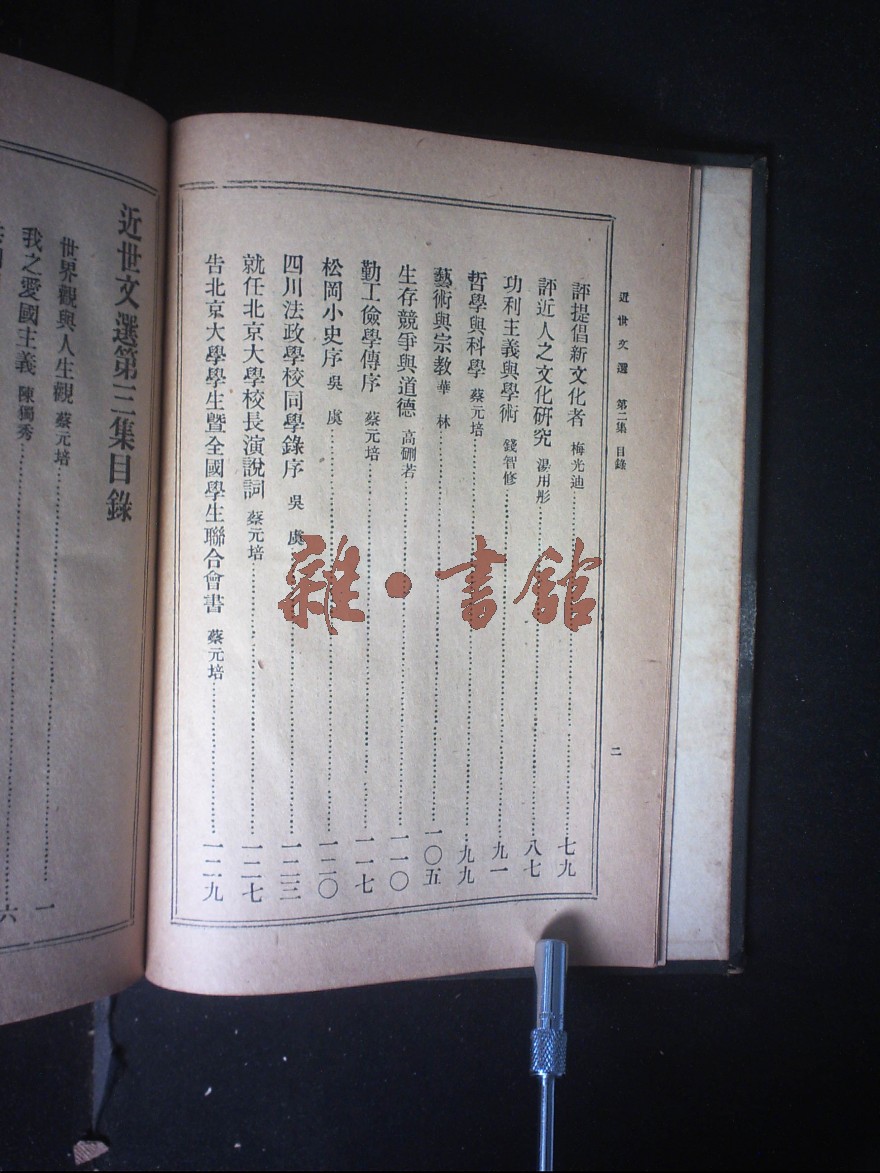 近世文選　第二集　目錄
二
評提倡新文化者　梅光迪……七九
評近人之文化研究　湯用彤……八七
功利主義與學術　錢智修……九一
哲學與科學　蔡元培……九九
藝術與宗教　華　林……一〇五
生存競爭與道德　高硎若……一一〇
勤工儉學傳序　蔡元培……一一七
松岡小史序　吳　虞……一二〇
四川法政學校同學錄序　吳　虞……一二三
就任北京大學校長演說詞　蔡元培……一二七
告北京大學學生暨全國學生聯合會書　蔡元培……一二九
近世文選第三集目錄
世界觀與人生觀　蔡元培……一
我之愛國主義　陳獨秀……六
雜·書館